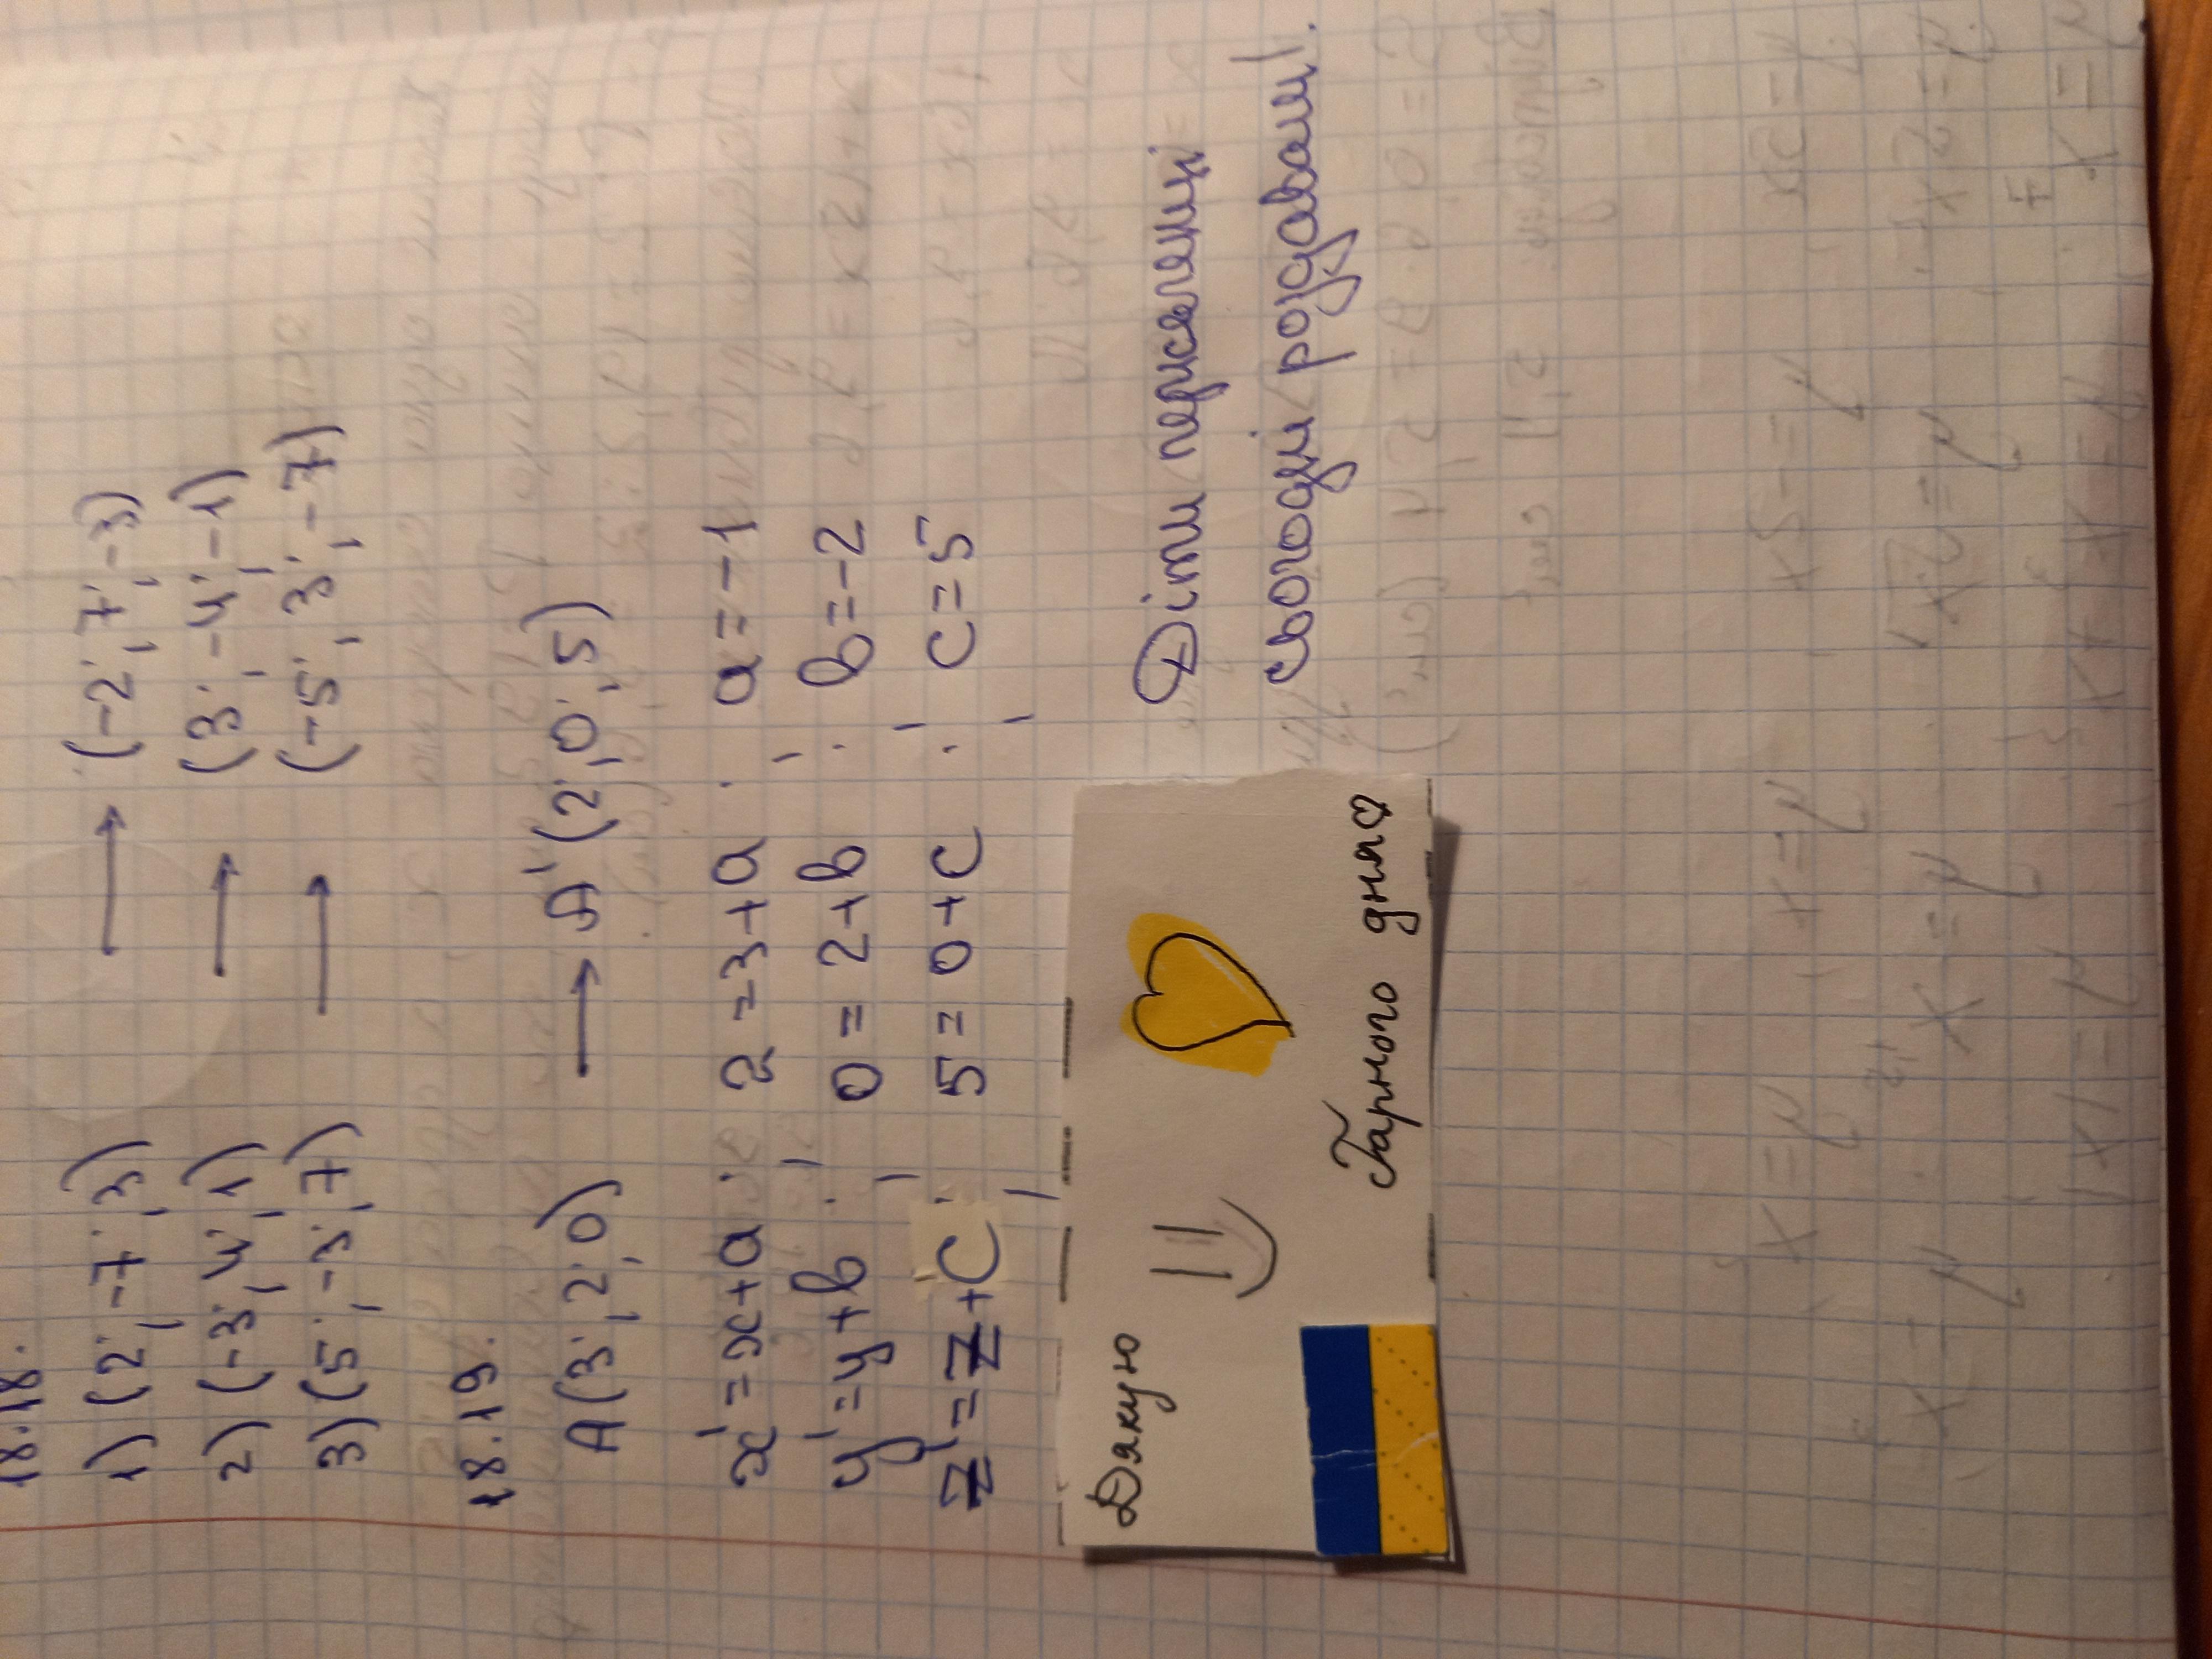 18.18.
1) (2; -7; 3) → (-2; 7; -3)
2) (-3; 4; 1) → (3; -4; -1)
3) (5; -3; 7) → (-5; 3; -7)
18.19.
A(3; 2; 0) → A' (2; 0; 5)
x' = x+a ; 2 = 3+a ; a = -1
y' = y+b ; 0 = 2+b ; b = -2
z' = z+c ; 5 = 0+c ; c = 5
Дякую
Гарного дня
Діти переселенці
сьогодні роздавали!